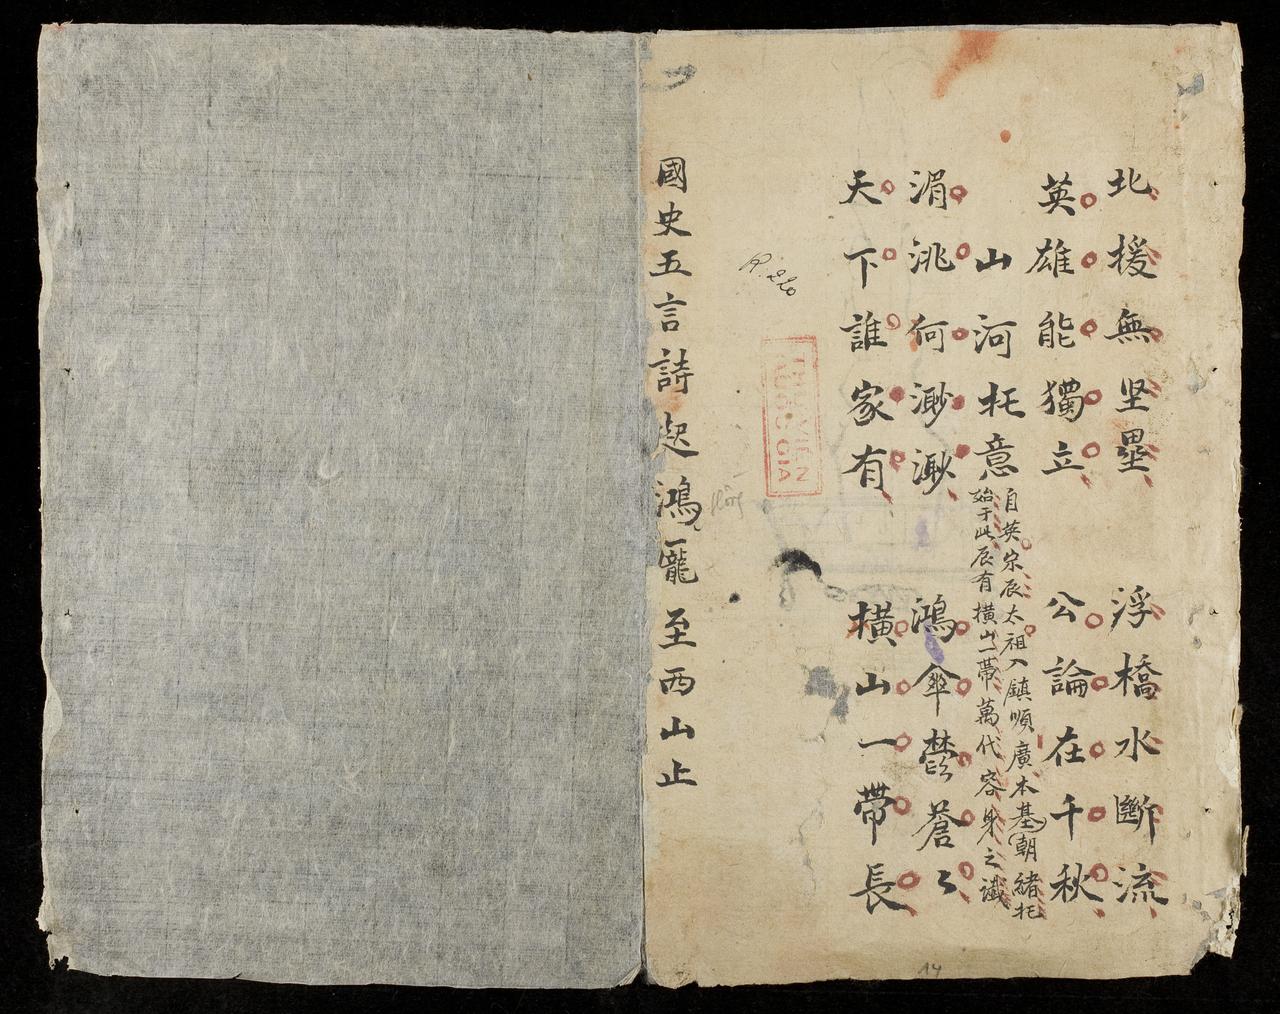 北援無坚壘 浮橋水斷流
英雄能獨立 公論在千秋
山河托意
自英宗辰太祖入鎮順廣本基朝緒托
始于此辰有橫山一帶萬代容身之讖
湄洮何渺渺 鴻傘欝蒼〻
天下誰家有 橫山一帶長
R. 220
THƯ VIỆN
QUỐC GIA
國史五言詩起鴻龐至西山止
14